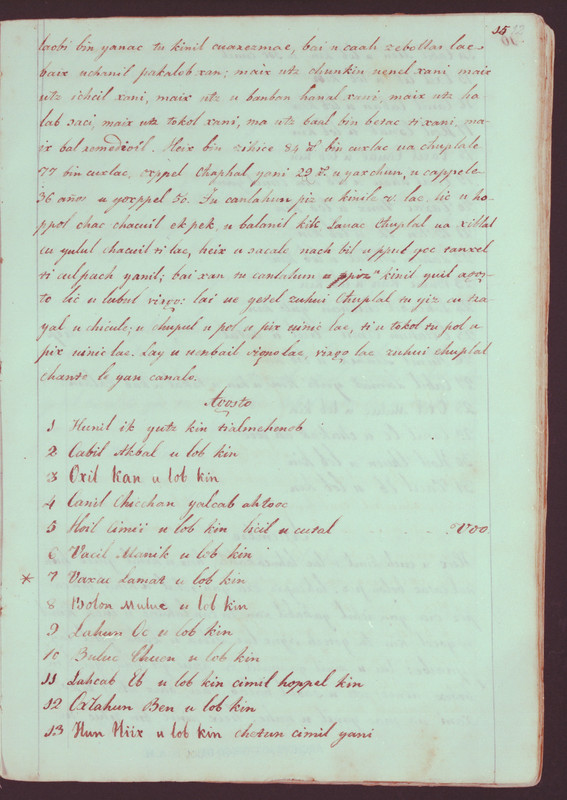 15
laobi bin yanac tu kinil cuarezmae, bai u caah zebollas lac
baix uchanil pakalob xan; maix utz chunkin uenel xani, maix
utz ichcil xani, maix utz u banban hanal xani; maix utz ha-
lab saci, maix utz tokol xani, ma utz baal bin betac ti xani, ma-
ix bal remedioil. Heix bin zihice 84 bin cuxlac ua chuplale
77 bin cuxlac, oxppel chaphal yani 29 u yaxchun, u cappele
36 años u yoxppel 50. Tu canlahun piz u kinile lac, lic u ho-
ppol chac chacuil ek pek, u balanil kik lauac chuplal ua xiblal
cu yulul chacuil ti lac, heix u sacale nach bil u ppul ycc tanxel
ti cul puch yanil; bai xan tu canlahun u kinil yuil agos-
to lic u lubul virgo: lai ue yetel zuhui chuplal tu yiz cu tza-
yal u chicule; u chupul u pol u pix uinic lae, ti u tokol tu pol u
pix uinic lae. Lay u uenbail signo lae, virgo lae zuhui chuplal
chante le yan canalo.
Agosto
1 Hunil ik yutz kin tialmehenob
2 Cabil Akbal u lob kin
3 Oxil Kan u lob kin
4 Canil Chicchan yalcab ahtooc
5 Hoil Cimii u lob kin licil u cutal Voo.
6 Vacil Manik u lob kin
* 7 Vaxac Lamat u lob kin
8 Bolon Muluc u lob kin
9 Lahun Oc u lob kin
10 Buluc Chuen u lob kin
11 Lahcab Eb u lob kin cimil hoppel kin
12 Oxlahun Ben u lob kin
13 Hun Hiix u lob kin chetun cimil yani